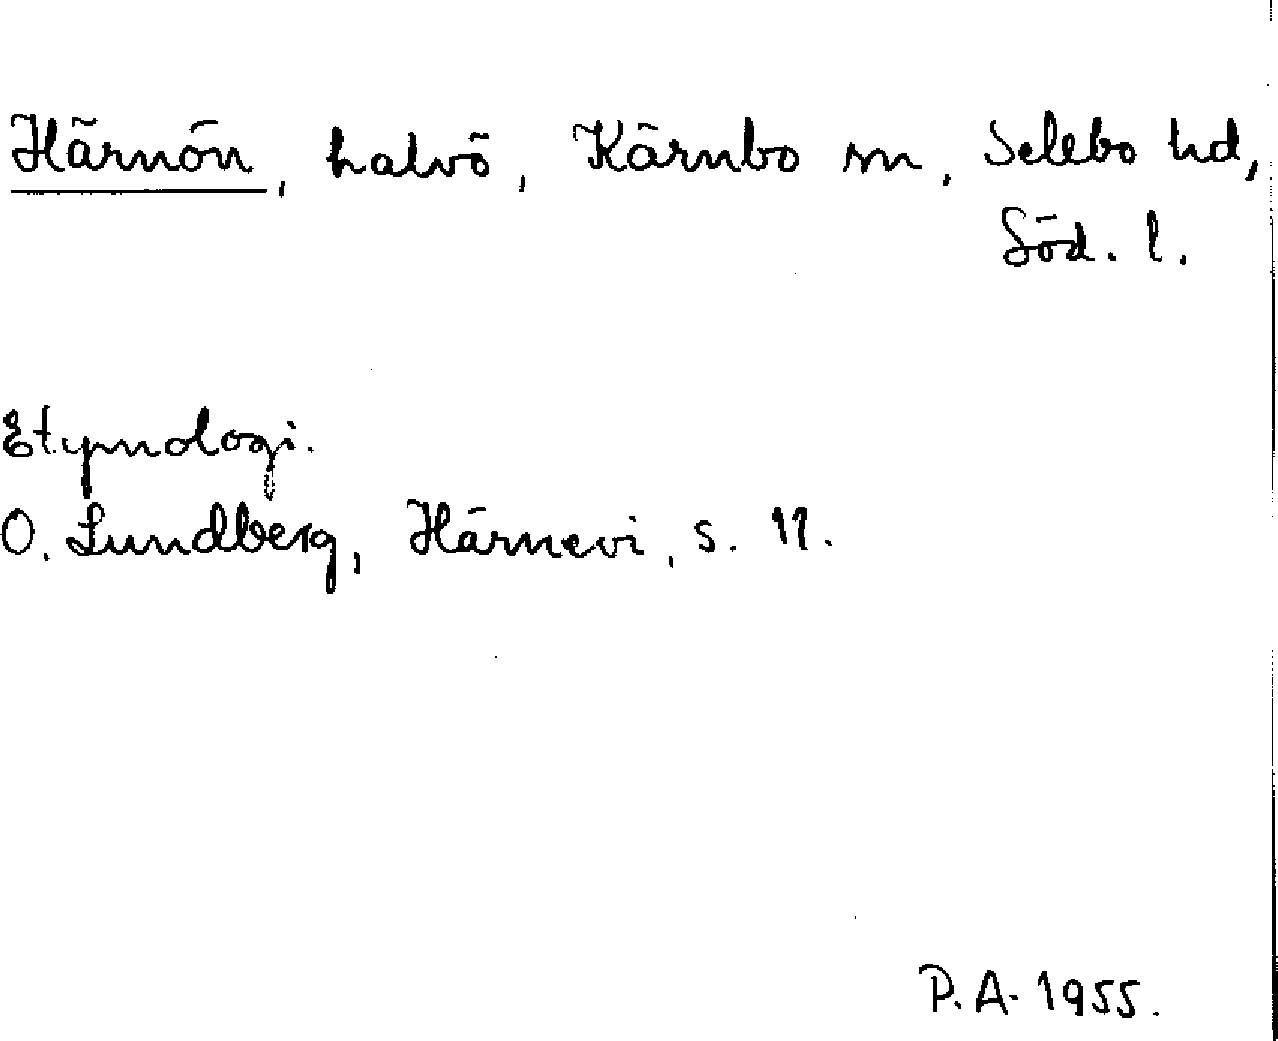 Härnön, halvö, Kärnbo sn, Selebo hd,
Söd. l.
Etymologi.
O. Lundberg, Härnevi, s. 11.
P.A. 1955.